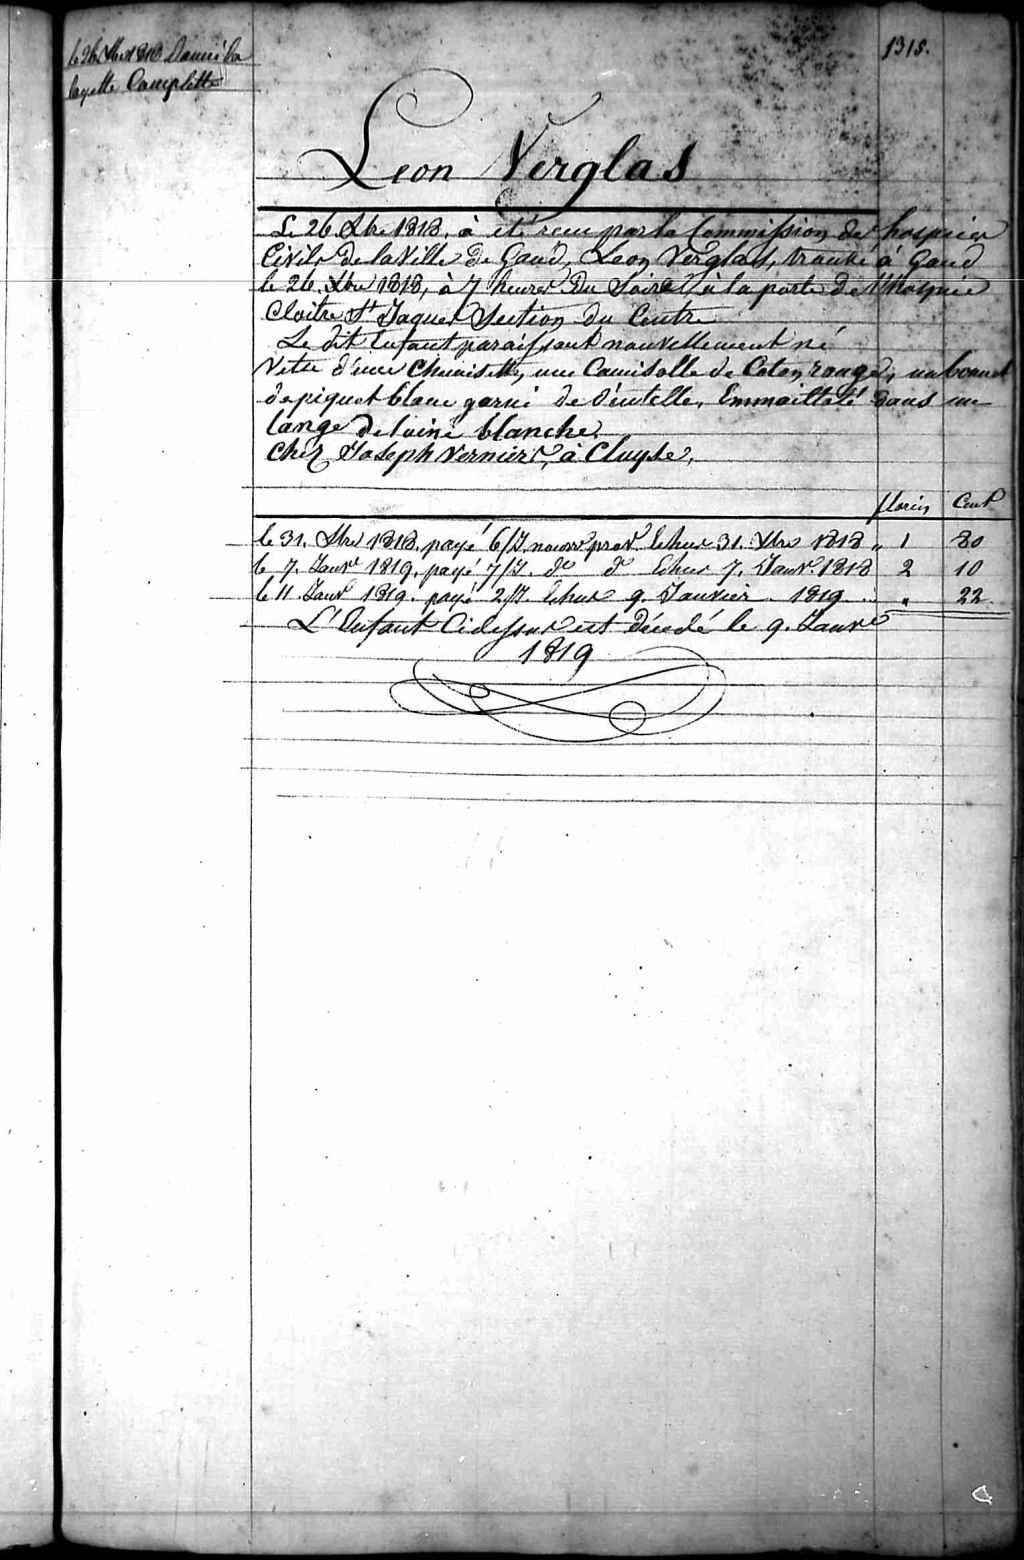 le 26 Xbre 1818 Donné la
layette Complette
1318.
Leon Verglas
Le 26 Xbre 1818, à été recu par la Commission des hospices
Civils de la Ville de Gand, Leon Verglas, trouvé à Gand
le 26. Xbre 1818, à 7 heures Du Soire à la porte de l'hospice
Cloitre St Jaques Section du Centre
Le dit Enfant paraissant nouvellement né
Vetu d'une Chemisette, une Camisolle de Coton rouge, un bonnet
de piquet blanc garni de Déntelle, Emmailloté dans un
lange de laine blanche.
Chez Joseph Vernier, à Cluyse,
florins Cents
le 31. Xbre 1818. payé 6/J. nourr prov Echus 31. Xbre 1818 " 1 80
le 7. Janvr 1819. payé 7/J. do do Echus 7. Janvr. 1818 2 10
le 11 Janvr 1819. payé 2/J. Echus 9. Janvier 1819 " 22
L'Enfant Cidessus est décedé le 9. Janvr
1819